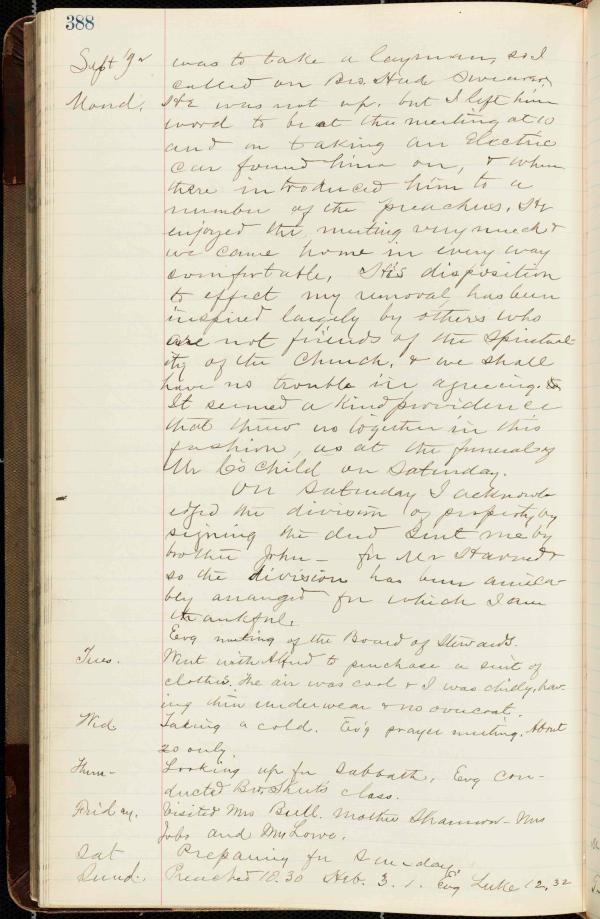 388
Sept '92 was to take a layman, so I
called on Bro. Hud
Mond. He was not up. but I left him
word to be at the meeting at 10
and on taking an Electric
car found him on, & when
there introduced him to a
number of the preachers. He
enjoyed the meeting very much &
we came home in every way
comfortable. His disposition
to effect my removal has been
inspired largely by others who
are not friends of the Spiritual-
ity of the Church. & we shall
have no trouble in agreeing.
It seemed a kind providence
that threw us together in this
fashion, as at the funeral of
Mr C's child on Saturday.
On Saturday I acknowl
edged the division of property by
signing the deed sent me by
brother John — for Mr
so the division has been amica
bly arranged for which I am
thankful.
Evg meeting of the Board of Stewards.
Tues. Went with Alfred to purchase a suit of
clothes. The air was cool & I was chilly, hav-
ing thin underwear & no overcoat.
Wed. Taking a cold. Ev'g prayer meeting. About
20 only
Thur- Looking up for Sabbath. Evg con-
ducted Bro. class.
Friday. Visited Mrs Bull. Mother Shannon - Mrs
Jobs and Mrs Lowe.
Sat Preparing for Sunday.
Sund. Preached 10.30 Heb. 3. 1. Evg Luke 12, 32